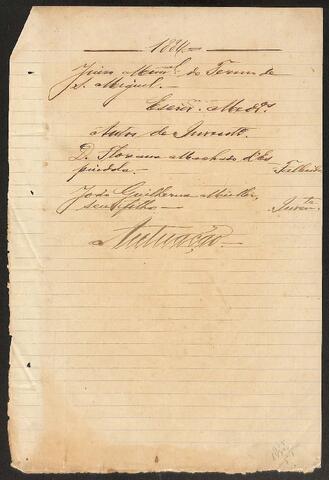 1884
Juizo Mun.al do Termo de
S. Miguel.
Escr.m Med.os
Autos de Invent.o
D. Floriana Machado d'Es
pindola. Fallecida
João Guilherme Müller,
seu filho Invent.te
Autuação